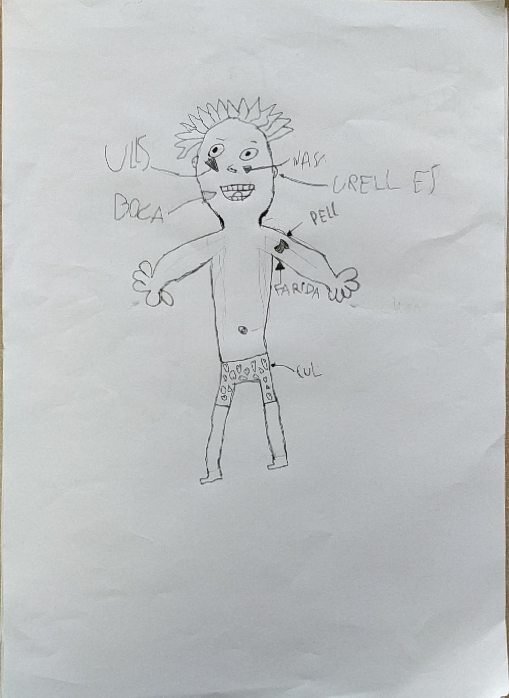 ULLS
NAS
URELL ES
BOCA
PELL
FARIDA
CUL